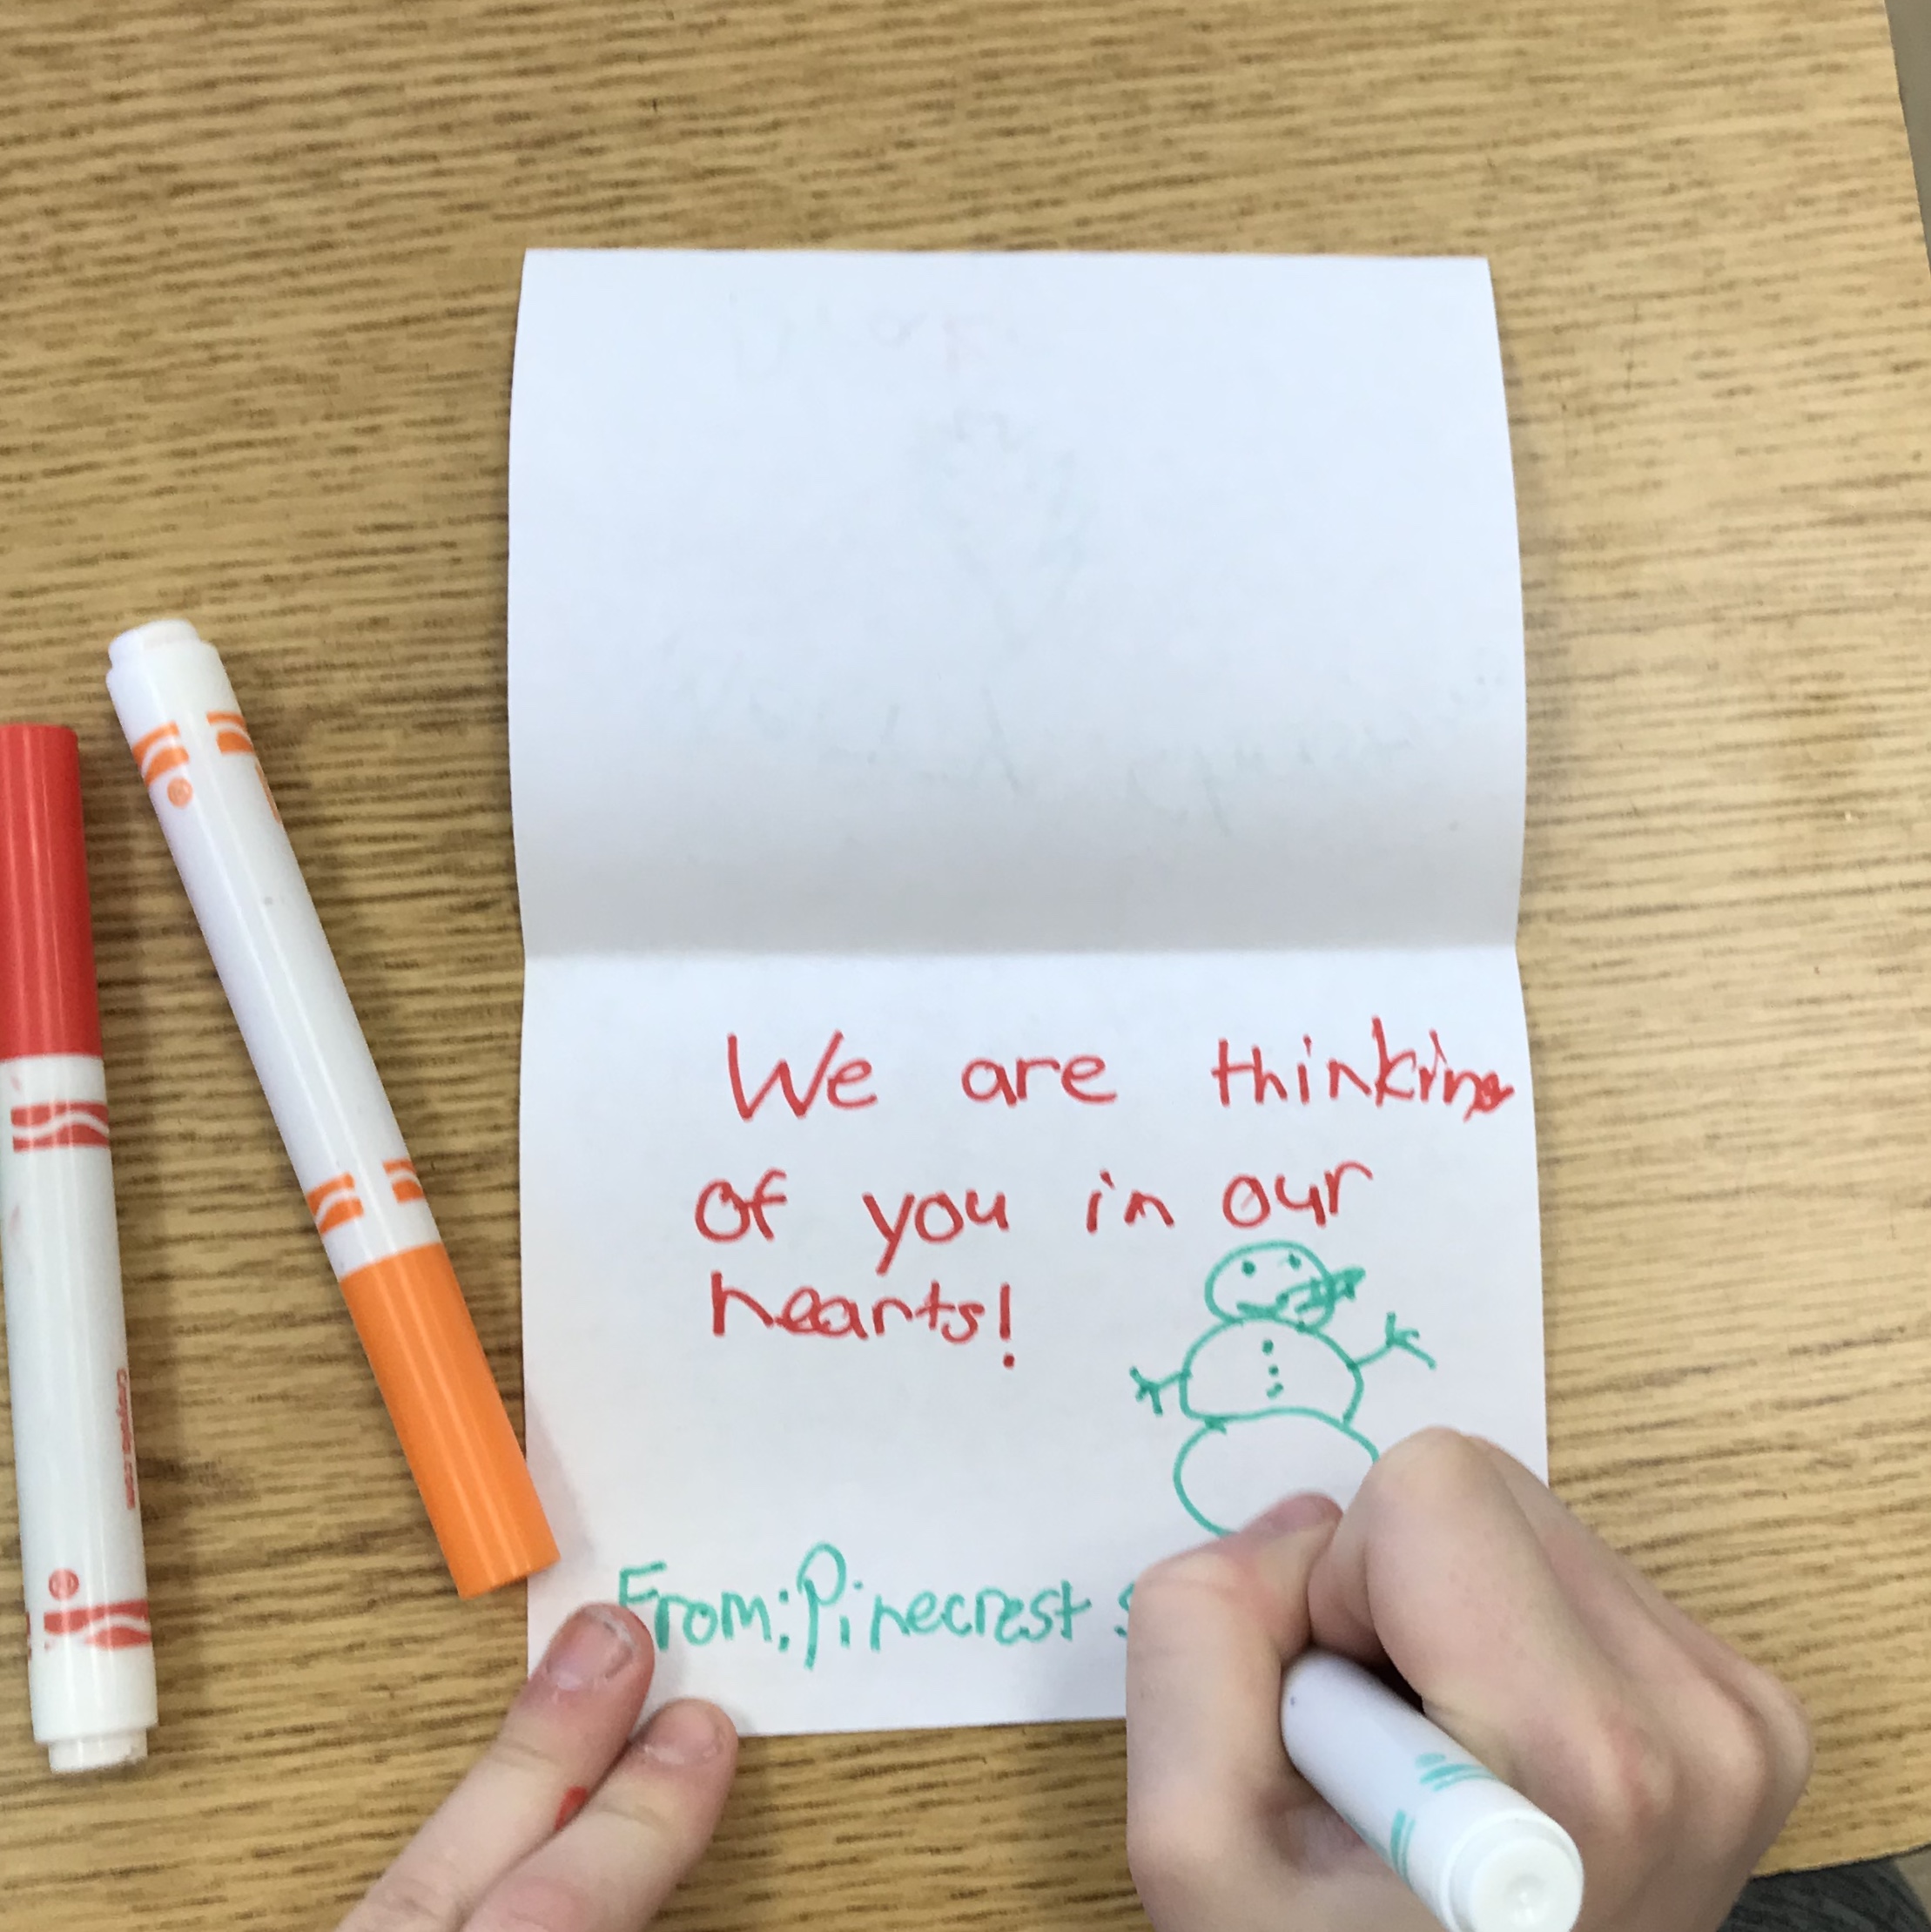 We are thinking
of you in our
hearts!
From: Pinecrest